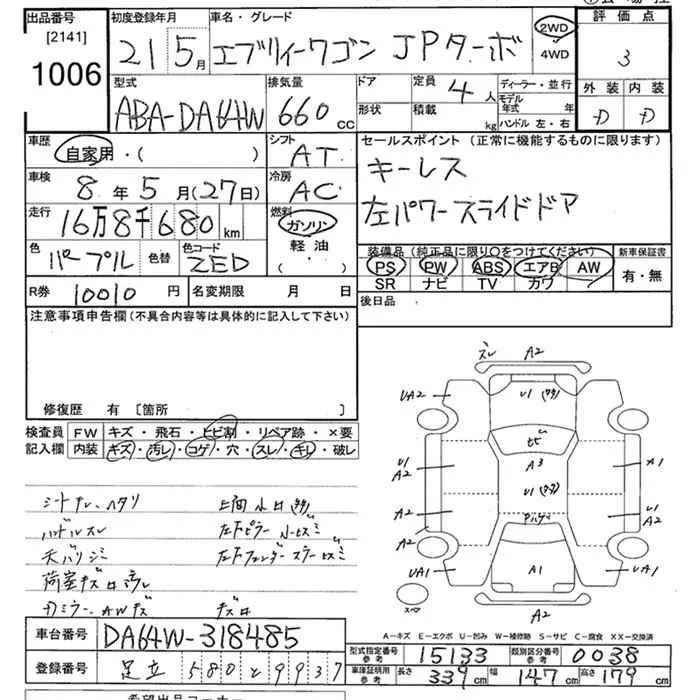 出品番号 初度登録年月 車名・グレード 評価点
[2141] 1006
21 5月 エブリィーワゴン JPターボ 2WD 4WD 3
型式 排気量 ドア 定員 4人 ディーラー・並行 外装 内装
ABA-DA64W 660cc 形状 積載 kg モデル年式 年 D D
ハンドル 左・右
車歴 自家用・( ) シフト AT セールスポイント(正常に機能するものに限ります)
車検 8年5月(27日) 冷房 AC キーレス
走行 16万8千680km 燃料 ガソリン 軽油 ・( ) 左パワースライドドア
色 パープル 色替 色コード ZED 装備品(純正品に限り○をつけてください) 新車保証書
PS PW ABS エアB AW 有・無
SR ナビ TV カワ
R券 10010円 名変期限 月 日 後日品
注意事項申告欄(不具合内容等は具体的に記入して下さい)
修復歴 有 〔箇所 〕
検査員 FW キズ・飛石・ヒビ割・リペア跡・×要
記入欄 内装 キズ・汚レ・コゲ・穴・スレ・キレ・破レ
シートスレ、ヘタリ
ハンドルスレ
天バリシミ
荷室キズ
Dミラー、AWキズ
ズレ A2
UA2 U1
ヒビ
U1 A2 A3 A1
U1
A2 U1 A2
A2
UA1 A1 UA1
スペア A2
A-キズ E-エクボ U-凹み W-補修跡 S-サビ C-腐食 XX-交換済
車台番号 DA64W-318485 型式指定番号 参考 15133 類別区分番号 参考 0038
登録番号 足立 580 と 9937 車庫証明用 参考 長さ 339cm 幅 147cm 高さ 179cm